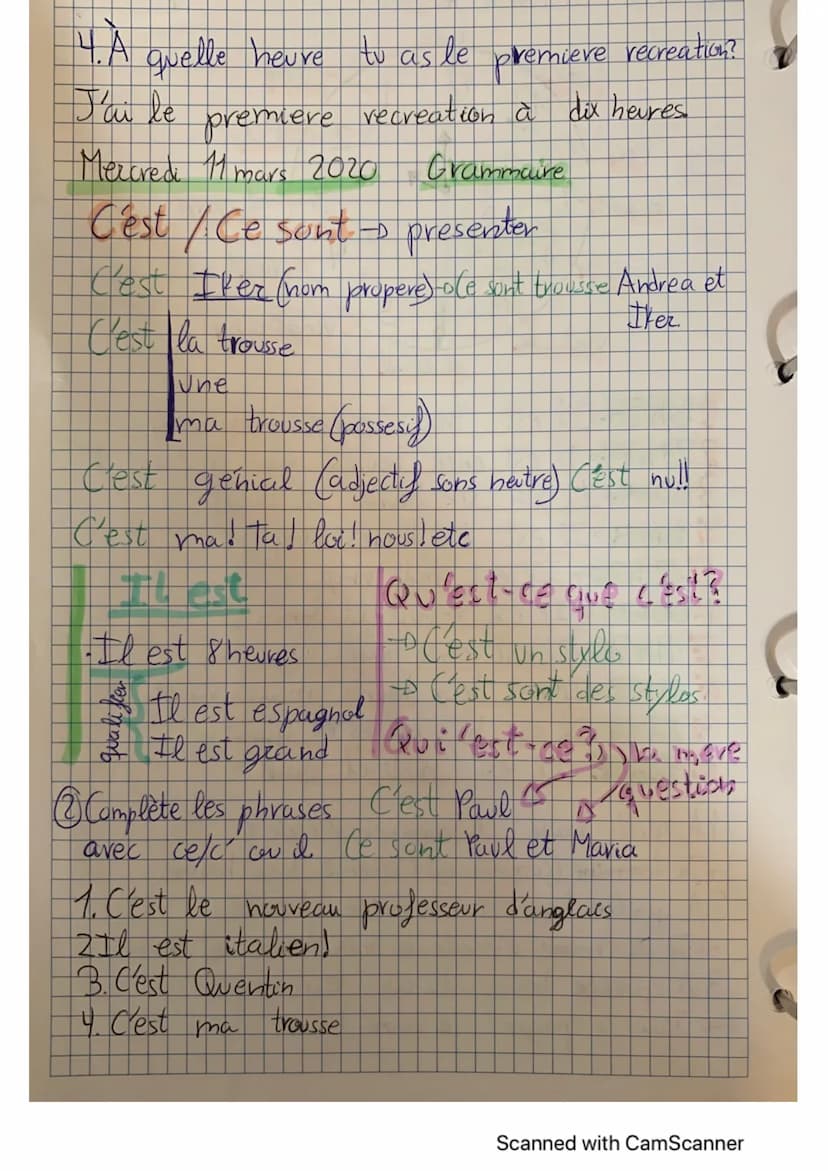 4. À quelle heure tu as le premiere recreation?
J'ai le premiere recreation à dix heures
Mercredi 11 mars 2020 Grammaire
C'est / Ce sont → presenter
C'est Iker (nom propere) → Ce sont trousse Andrea et Iker
C'est la trousse
une
ma trousse (possesif)
C'est génial (adjectif sons neutre) C'est nul!
C'est ma! Ta! loi! nous! etc
Il est
· Il est 8 heures
qualifier
Il est espagnol
Il est grand
Qu'est-ce que c'est?
→ C'est un stylo
→ C'est sont des stylos
Qui 'est-ce? question
② Complète les phrases
avec ce/c' ou il
C'est Paul
Ce sont Paul et Maria
1. C'est le nouveau professeur d'anglacs
2 Il est italien!
3. C'est Quentin
4. C'est ma trousse
Scanned with CamScanner